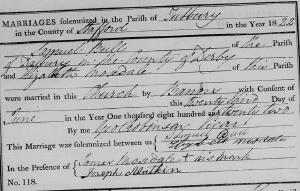 MARRIAGES solemnized in the Parish of Tutbury
in the County of Stafford in the Year 1822
Samuel Bull of the Parish
of Dalbury in the County of Derby
and Elizabeth Mosdale of this Parish
were married in this Church by Banns with Consent of
this twenty third Day of
June in the Year One thousand eight hundred and twenty two
By me Geo Robinson Vicar
This Marriage was solemnized between us Samuel Bull
Elizabeth Mosdale
In the Presence of James Mosdale + his mark
Joseph Matkin
No. 118.